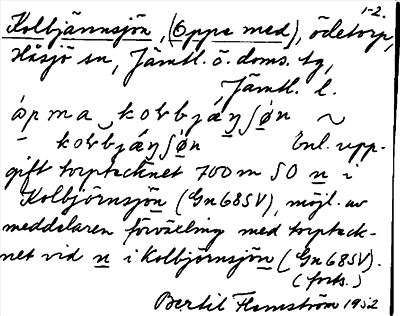 1-2.
Kolbjännsjön, (Oppe med), ödetorp,
Håsjö sn, Jämtl. ö. doms. tg,
Jämtl. l.
kolbjäŋʃøn ~
kolbjäŋʃøn Enl. upp-
gift torptecknet 700 m SO n i
Kolbjörnsjön (Gn 68SV), möjl. av
meddelaren förväxling med torpteck-
net vid n i Kolbjörnsjön (Gn 68SV).
(forts.)
Bertil Flemström 1952